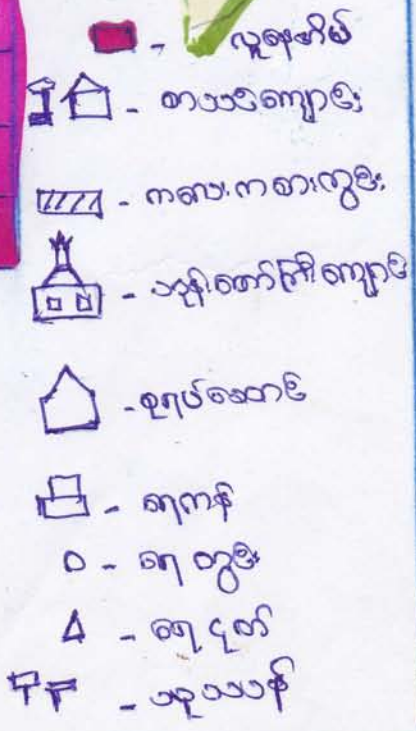 လူနေအိမ်
စာသင်ကျောင်း
ကလေးကစားကွင်း
ဘုန်းတော်ကြီးကျောင်း
စုရပ်ဆောင်
ရေကန်
ရေတွင်း
ရေငုတ်